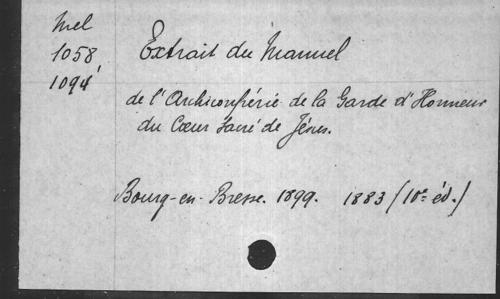 Mel
1058,
1094
Extrait du Manuel
de l'Archiconfrérie de la Garde d'Honneur
du Cœur Sacré de Jésus.
Bourg-en-Bresse. 1899. 1883 (10e éd.)